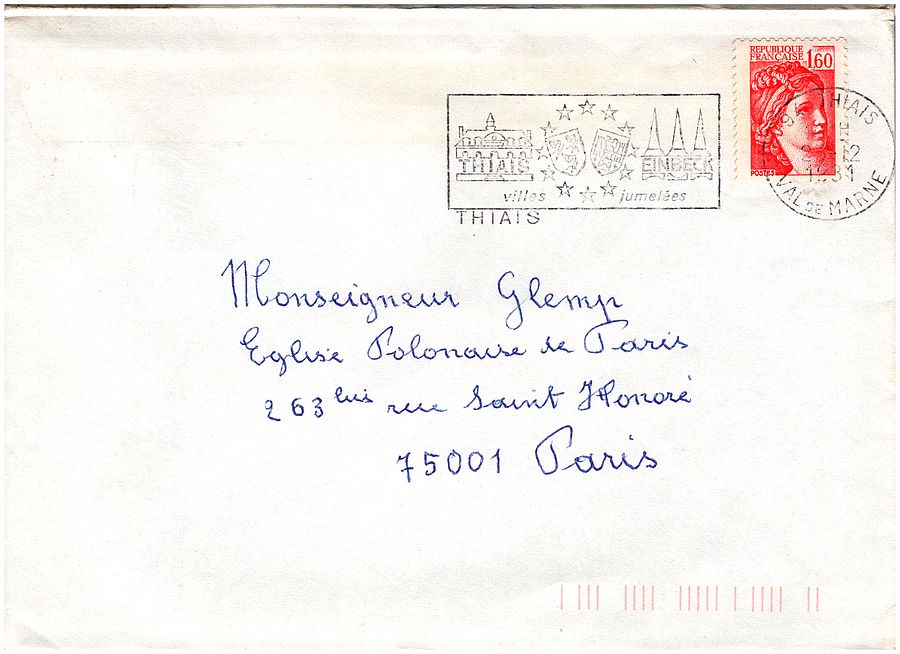 REPUBLIQUE
FRANÇAISE 1,60
POSTES
THIAIS
EINBECK
villes jumelées
THIAIS
94 THIAIS
1981
VAL DE MARNE
Monseigneur Glemp
Eglise Polonaise de Paris
263 bis rue Saint Honoré
75001 Paris